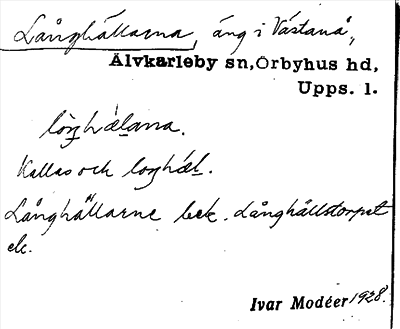 Långhällarna, äng i Västanå,
Älvkarleby sn, Örbyhus hd,
Upps. l.
lòŋhæ̀lana.
Kallas och loŋhæ̀l.
Långhällarne bek. Långhällstorpet
ek.
Ivar Modéer 1928.